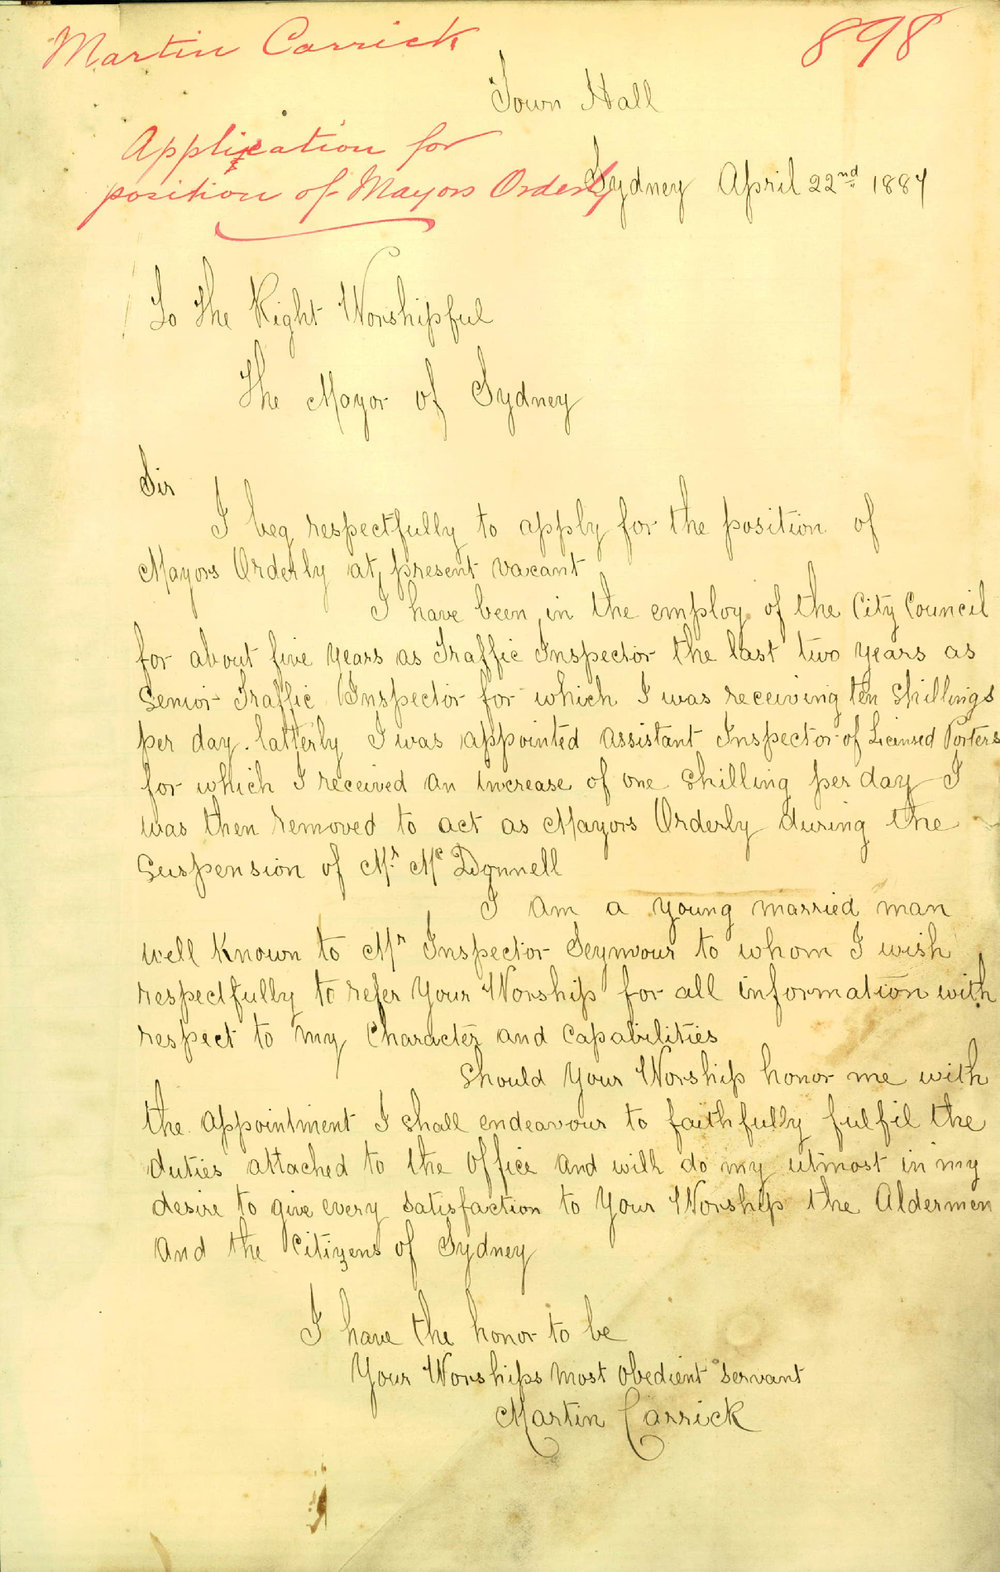 Martin Carrick
898
Town Hall
Application for
position of Mayors Orderly
Sydney April 22nd 1887
To The Right Worshipful
The Mayor of Sydney
Sir
I beg respectfully to apply for the position of
Mayors Orderly at present vacant
I have been in the employ of the City Council
for about five years as Traffic Inspector the last two years as
Senior Traffic Inspector for which I was receiving ten Shillings
per day. latterly I was appointed assistant Inspector of Licensed Porters
for which I received an increase of one Shilling per day I
was then removed to act as Mayors Orderly during the
Suspension of Mr McDonnell
I am a young married man
well known to Mr Inspector Seymour to whom I wish
respectfully to refer Your Worship for all information with
respect to my Character and Capabilities
Should Your Worship honor me with
the appointment I shall endeavour to faithfully fulfil the
duties attached to the office and will do my utmost in my
desire to give every satisfaction to Your Worship the Aldermen
and the Citizens of Sydney
I have the honor to be
Your Worships most obedient servant
Martin Carrick